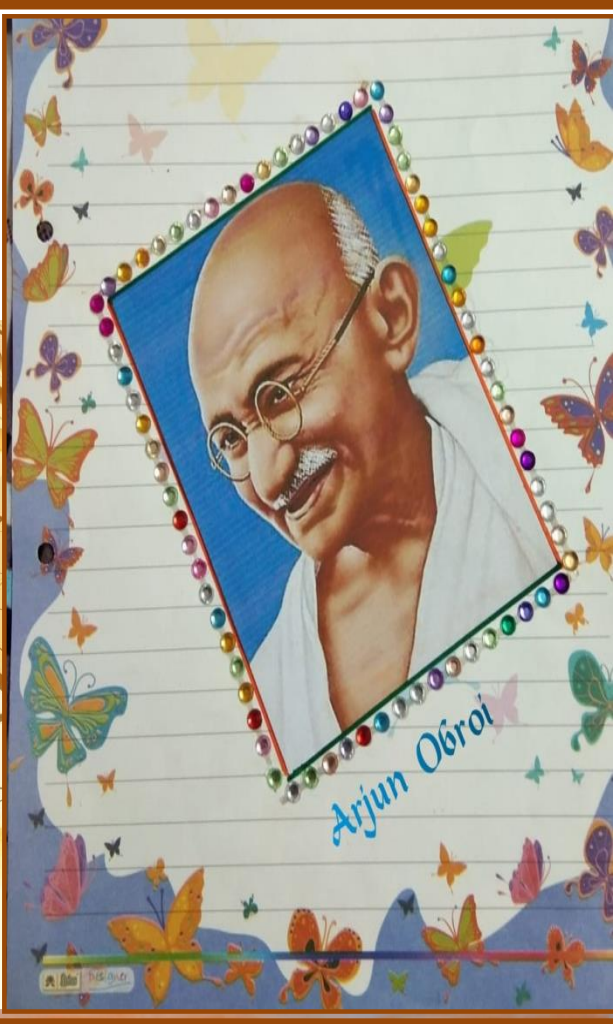 Arjun Obroi